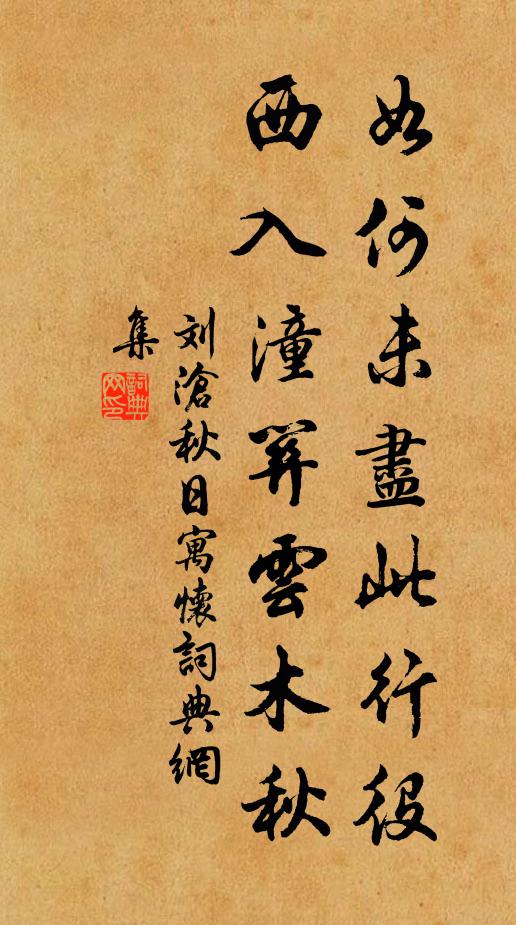 如何未盡此行役
西入潼關雲木秋
刘滄秋日寓懷詞典網
集
詞典網印